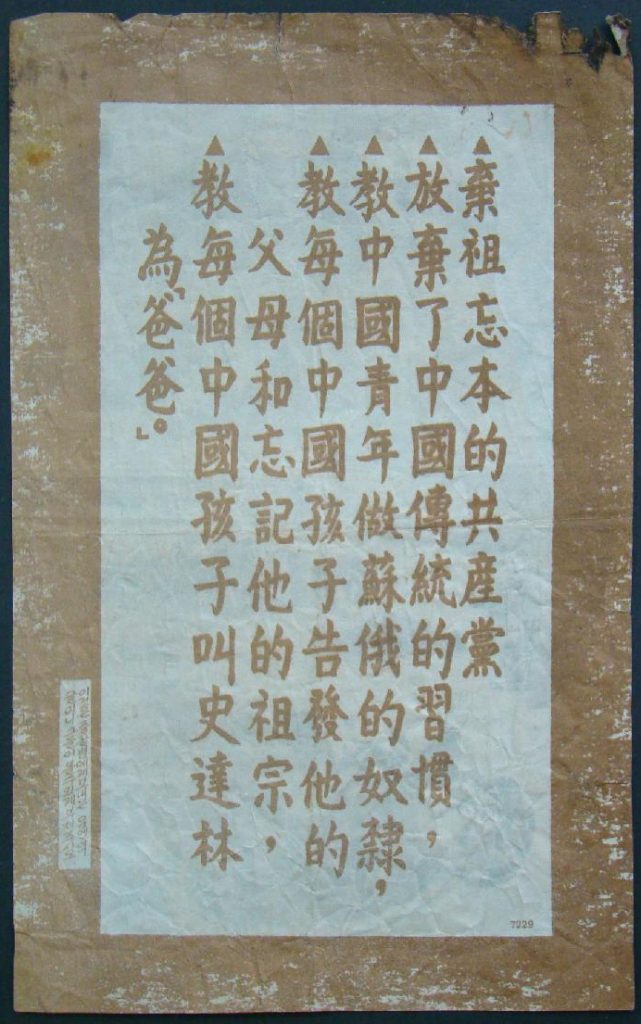 ▲棄祖忘本的共産黨
▲放棄了中國傳統的習慣，
▲教中國青年做蘇俄的奴隸，
▲教每個中國孩子告發他的
父母和忘記他的祖宗，
▲教每個中國孩子叫史達林
為「爸爸」。
7229